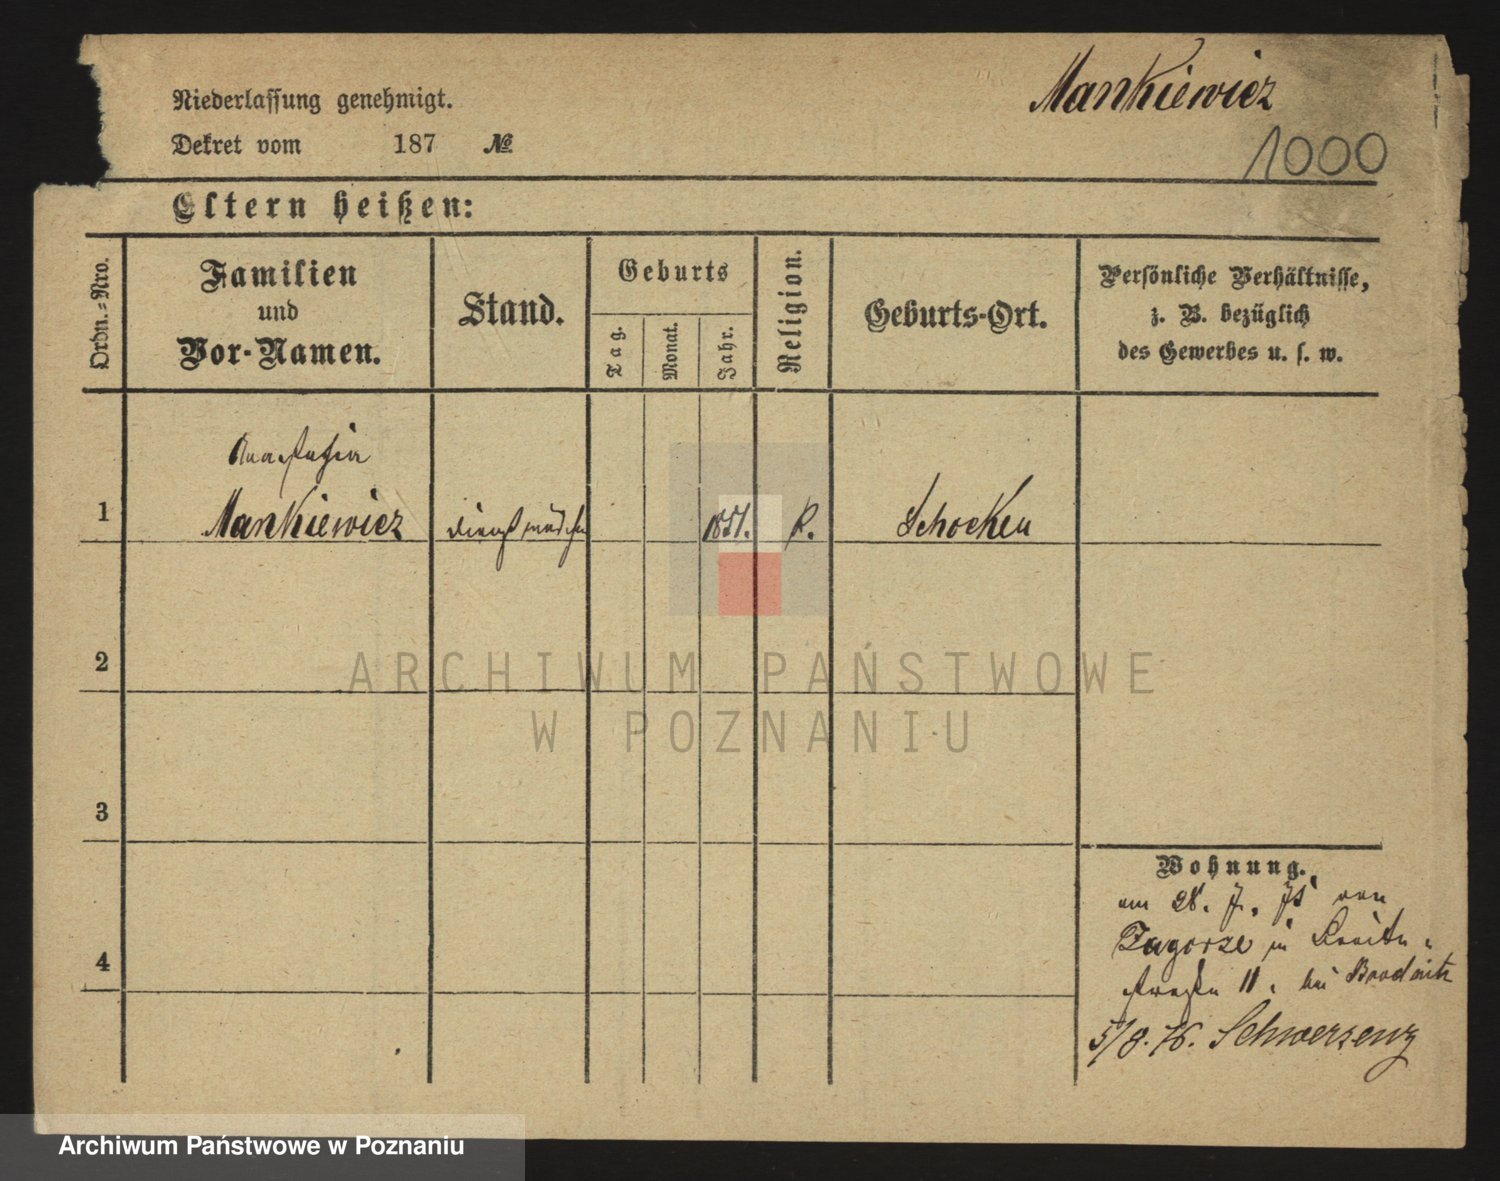 Mankiewicz
1000
Niederlassung genehmigt.
Dekret vom 187 №
Eltern heißen:
Ordn.-Nro.
Familien
und
Vor-Namen.
Stand.
Geburts
Tag.
Monat.
Jahr.
Religion.
Geburts-Ort.
Persönliche Verhältnisse,
z. B. bezüglich
des Gewerbes u. s. w.
Anastasia
1 Mankiewicz Dienstmädchen 1851. K. Schocken
2
3
4
Wohnung.
am 28. 7. 75 von
Zagorze in Breite-
straße 11. bei Brodnitz
5/8. 76. Schwersenz
ARCHIWUM PAŃSTWOWE
W POZNANIU
Archiwum Państwowe w Poznaniu